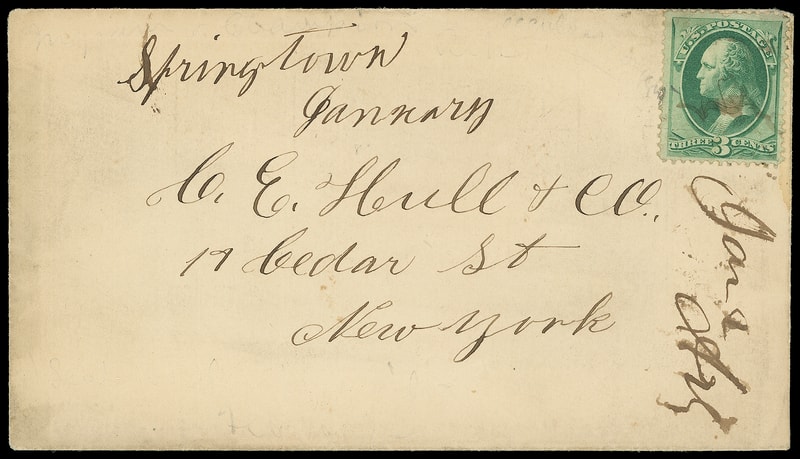 Springtown
January
C. E. Hull & Co.,
17 Cedar St
New York
U.S. POSTAGE
THREE 3 CENTS
Jan 2